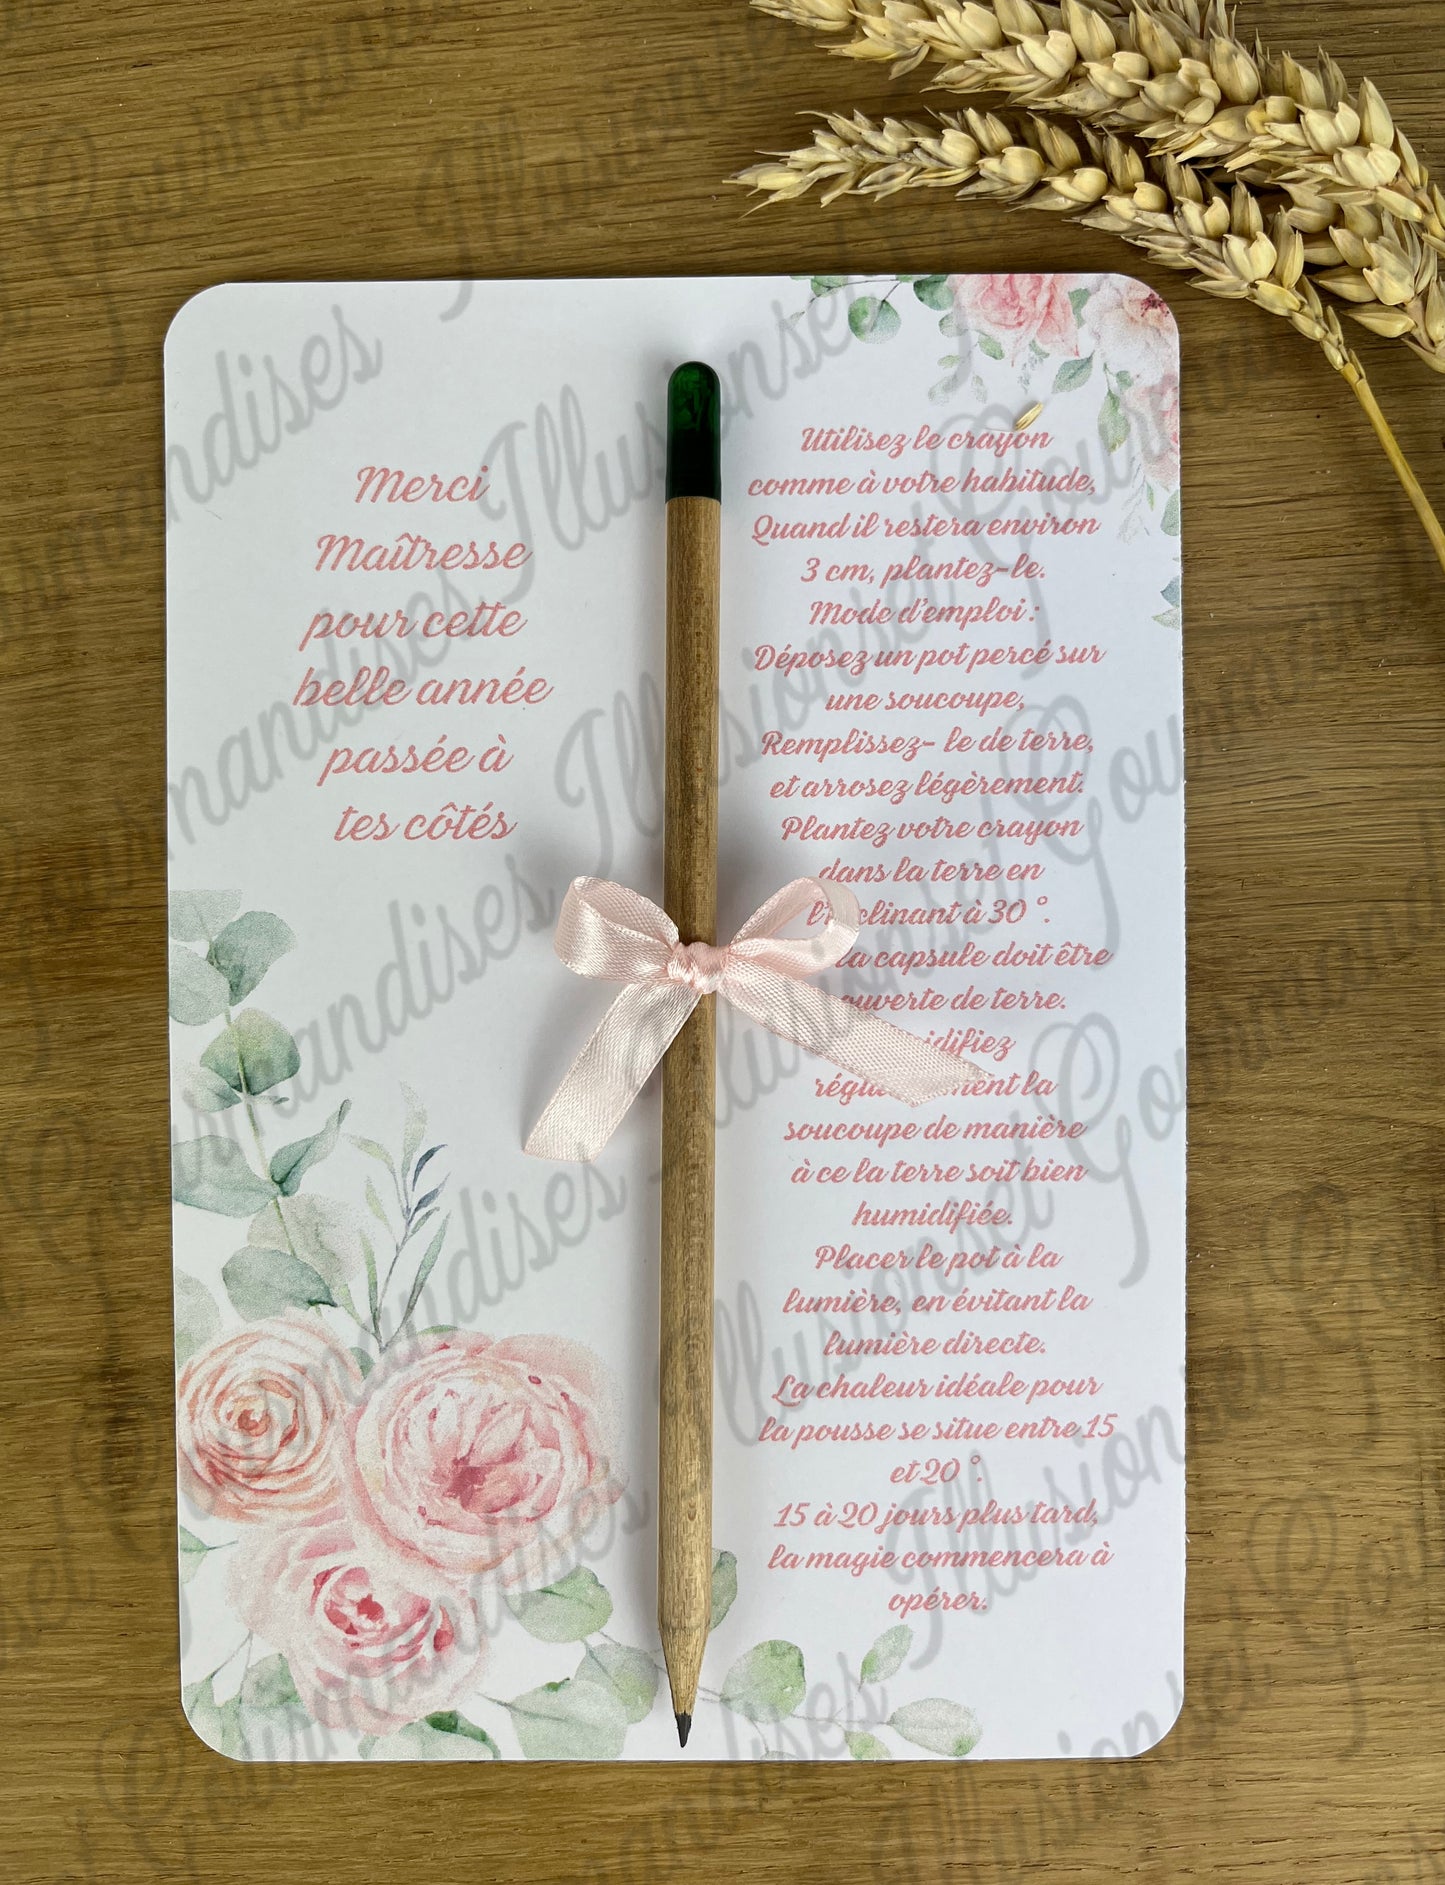 Merci
Maîtresse
pour cette
belle année
passée à
tes côtés
Utilisez le crayon
comme à votre habitude,
Quand il restera environ
3 cm, plantez-le.
Mode d'emploi :
Déposez un pot percé sur
une soucoupe,
Remplissez- le de terre,
et arrosez légèrement.
Plantez votre crayon
dans la terre en
à 30 °.
la capsule doit être
de terre.
la
soucoupe de manière
à ce la terre soit bien
humidifiée.
Placer le pot à la
lumière, en évitant la
lumière directe.
La chaleur idéale pour
la pousse se situe entre 15
et 20 °.
15 à 20 jours plus tard,
la magie commencera à
opérer.
Illusionset Gourmandises